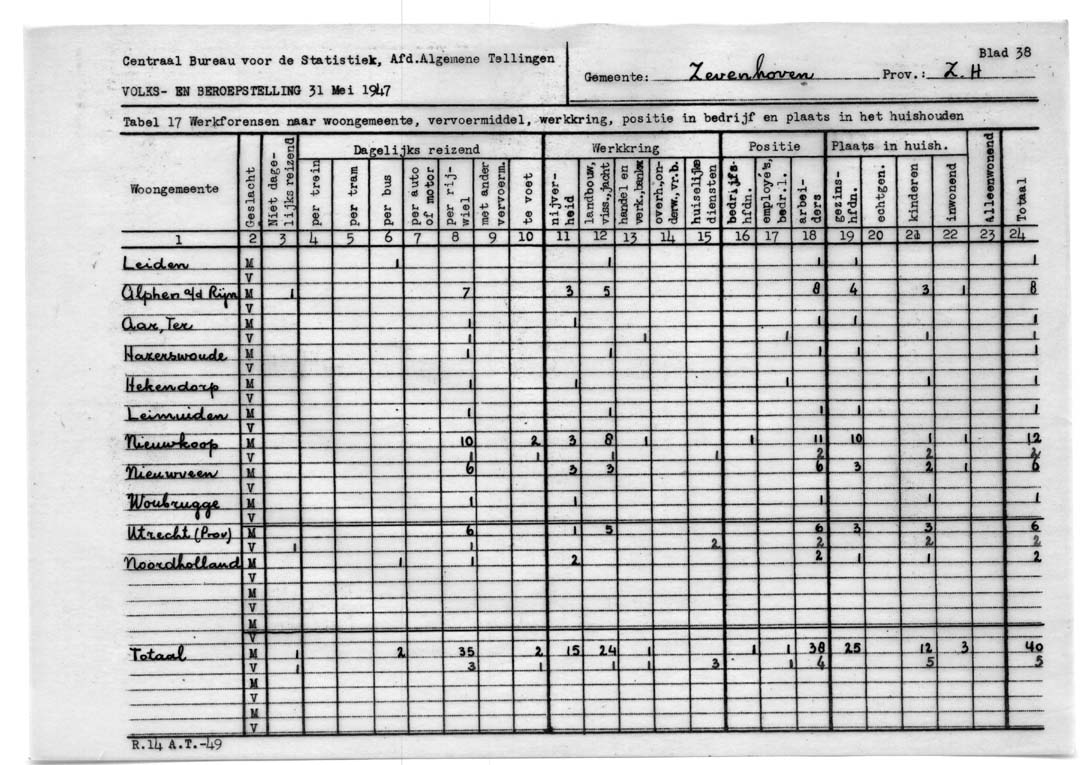 Centraal Bureau voor de Statistiek, Afd.Algemene Tellingen
VOLKS- EN BEROEPSTELLING 31 Mei 1947
Gemeente: Zevenhoven Prov.: Z.H
Blad 38
Tabel 17 Werkforensen naar woongemeente, vervoermiddel, werkkring, positie in bedrijf en plaats in het huishouden
Dagelijks reizend Werkkring Positie Plaats in huish.
Woongemeente Geslacht Niet dage-lijks reizend per trein per tram per bus per auto of motor per rij-wiel met ander vervoerm. te voet nijver-heid landbouw, viss.,jacht handel en verk.,bankw overh.,on-derw.,vr.b. huiselijke diensten bedrijfs-hfdn. employé's, bedr.l. arbei-ders gezins-hfdn. echtgen. kinderen inwonend Alleenwonend Totaal
1 2 3 4 5 6 7 8 9 10 11 12 13 14 15 16 17 18 19 20 21 22 23 24
Leiden M 1 1 1 1 1
V
Alphen a/d Rijn M 1 7 3 5 8 4 3 1 8
V
Aar, Ter M 1 1 1 1 1
V 1 1 1 1 1
Hazerswoude M 1 1 1 1 1
V
Hekendorp M 1 1 1 1 1
V
Leimuiden M 1 1 1 1 1
V
Nieuwkoop M 10 2 3 8 1 1 11 10 1 1 12
V 1 1 1 1 2 2 2
Nieuwveen M 6 3 3 6 3 2 1 6
V
Woubrugge M 1 1 1 1 1
V
Utrecht (Prov) M 6 1 5 6 3 3 6
V 1 1 2 2 2 2
Noordholland M 1 1 2 2 1 1 2
V
M
V
M
V
Totaal M 1 2 35 2 15 24 1 1 1 38 25 12 3 40
V 1 3 1 1 1 3 1 4 5 5
M
V
M
V
R.14 A.T.-49